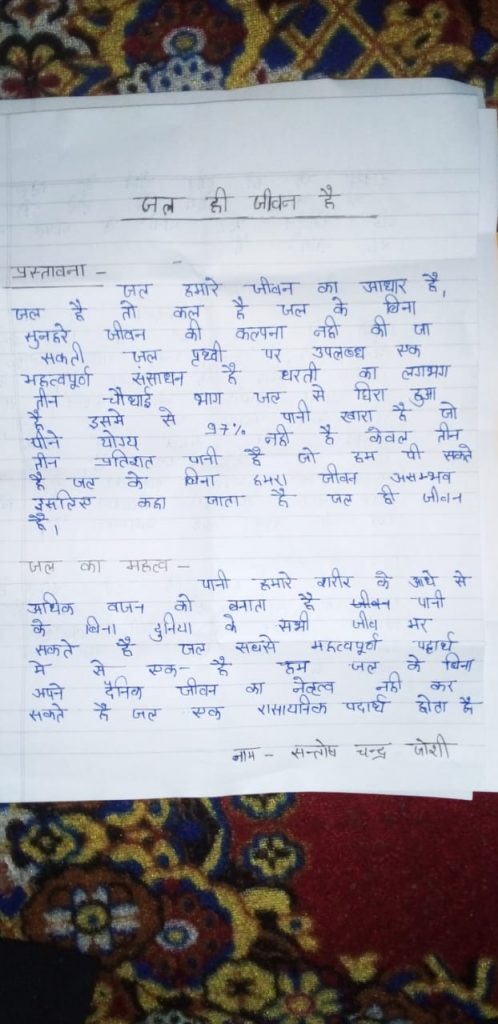 जल ही जीवन है
प्रस्तावना -
जल हमारे जीवन का आधार है,
जल है तो कल है जल के बिना
सुनहरे जीवन की कल्पना नही की जा
सकती जल पृथ्वी पर उपलब्ध एक
महत्वपूर्ण संसाधन है धरती का लगभग
तीन चौथाई भाग जल से घिरा हुआ
है इसमे से 97% पानी खारा है जो
पीने योग्य नही है केवल तीन
तीन प्रतिशत पानी है जो हम पी सकते
है जल के बिना हमरा जीवन असम्भव
इसलिए कहा जाता है जल ही जीवन
है।
जल का महत्व -
पानी हमारे शरीर के आधे से
अधिक वजन को बनाता है पानी
के बिना दुनिया के सभी जीव मर
सकते है जल सबसे महत्वपूर्ण पदार्थ
मे से एक- है हम जल के बिना
अपने दैनिक जीवन का नेतृत्व नही कर
सकते है जल एक रासायनिक पदार्थ होता है
नाम - सन्तोष चन्द्र जोशी